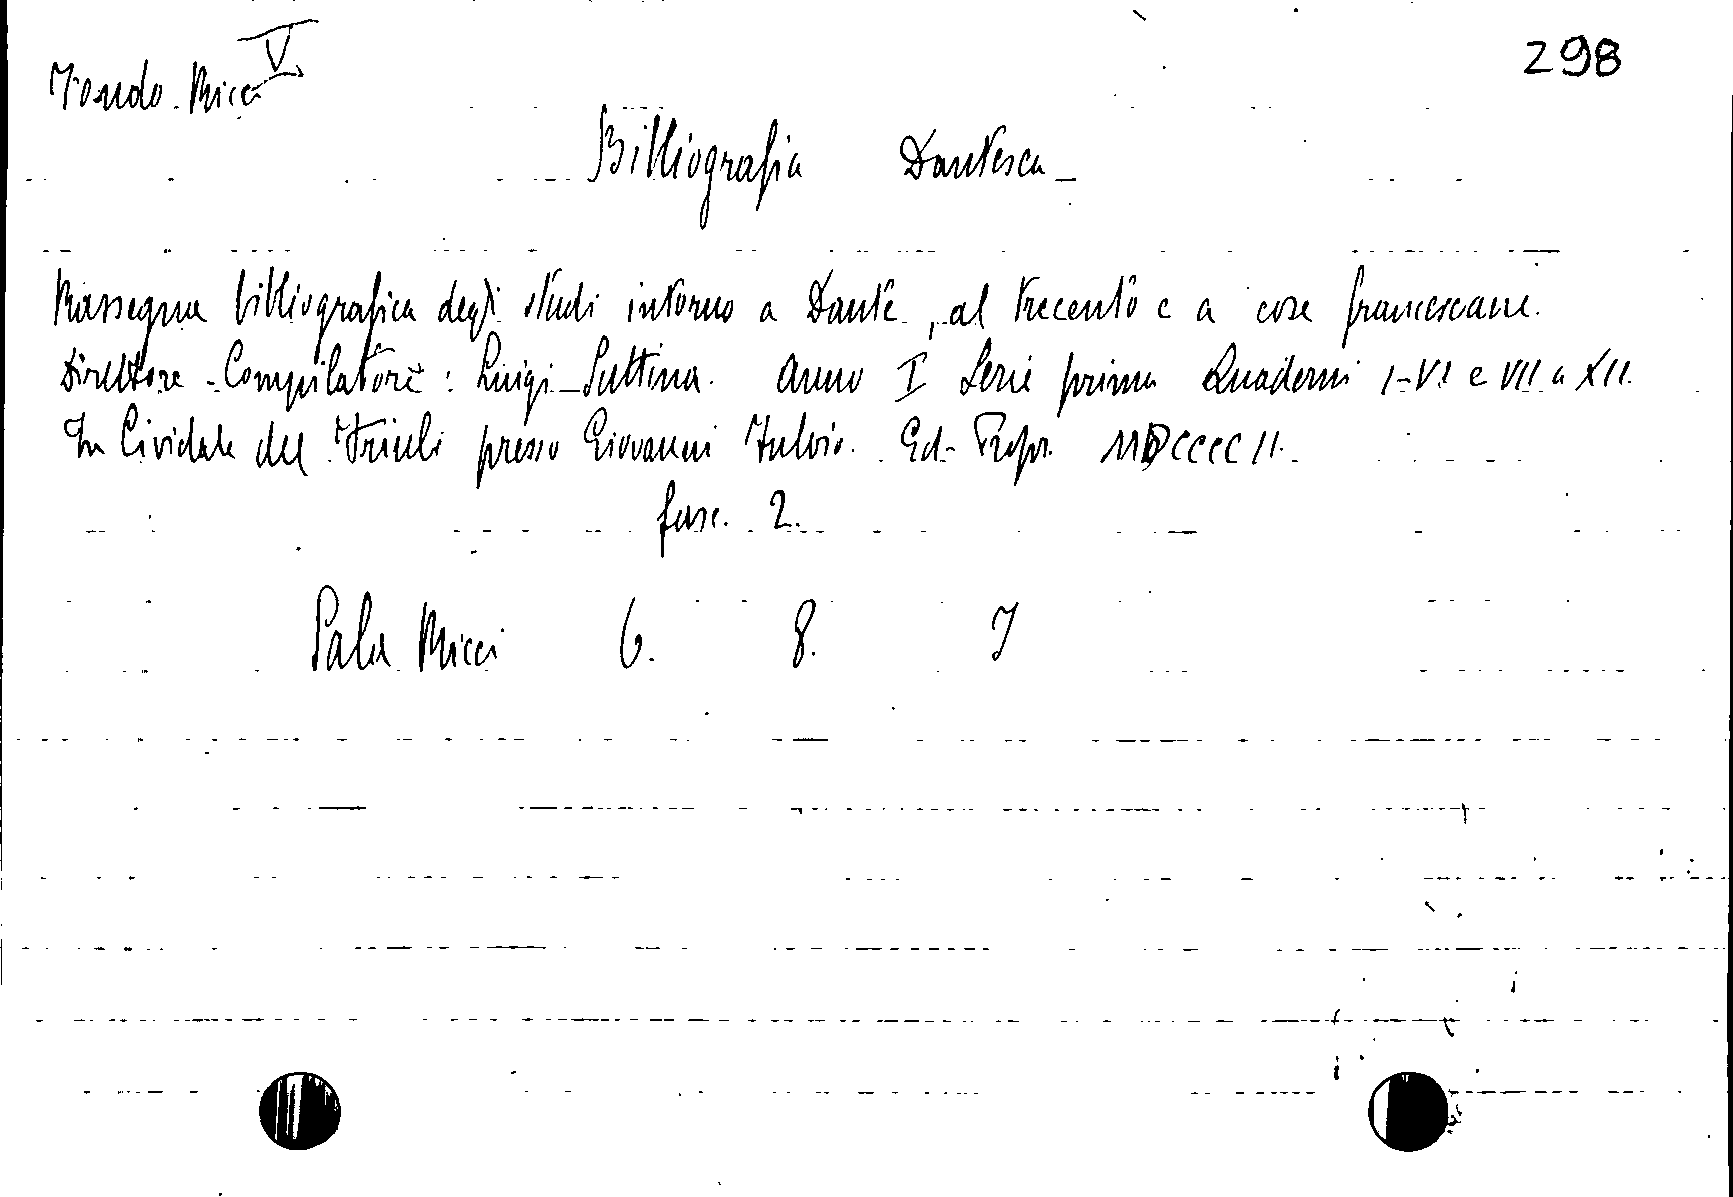 V
298
Fondo Ricci
Bibliografia Dantesca
Rassegna bibliografica degli studi intorno a Dante, al trecento e a cose francescane.
Direttore-Compilatore: Luigi Suttina. Anno I Serie prima Quaderni I-VI e VII a XII.
In Cividale del Friuli presso Giovanni Fulvio. Ed-Propr. MDCCCCII.
fasc. 2.
Sala Ricci 6. 8. 7